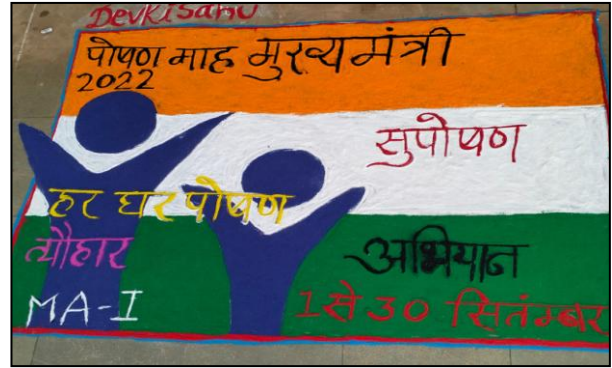 Devki sahu
पोषण माह मुख्यमंत्री
2022
सुपोषण
हर घर पोषण
त्यौहार
अभियान
MA-I
1 से 30 सितंम्बर